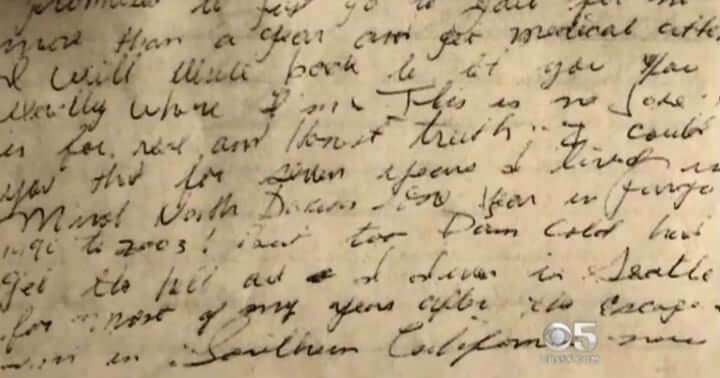 promised to first go to jail for no
more than a year and get medical atte
I will write back to let you you
exactly where I'm This is no Joke
is for real and Honest truth I could
you tht for seven years I lived in
Minot North Dakota year in Fargo
to 2003! But too Dam Cold had
get the hell out I lived in Seattle
for most of my years after the escape
in Southern California now
CBS 5